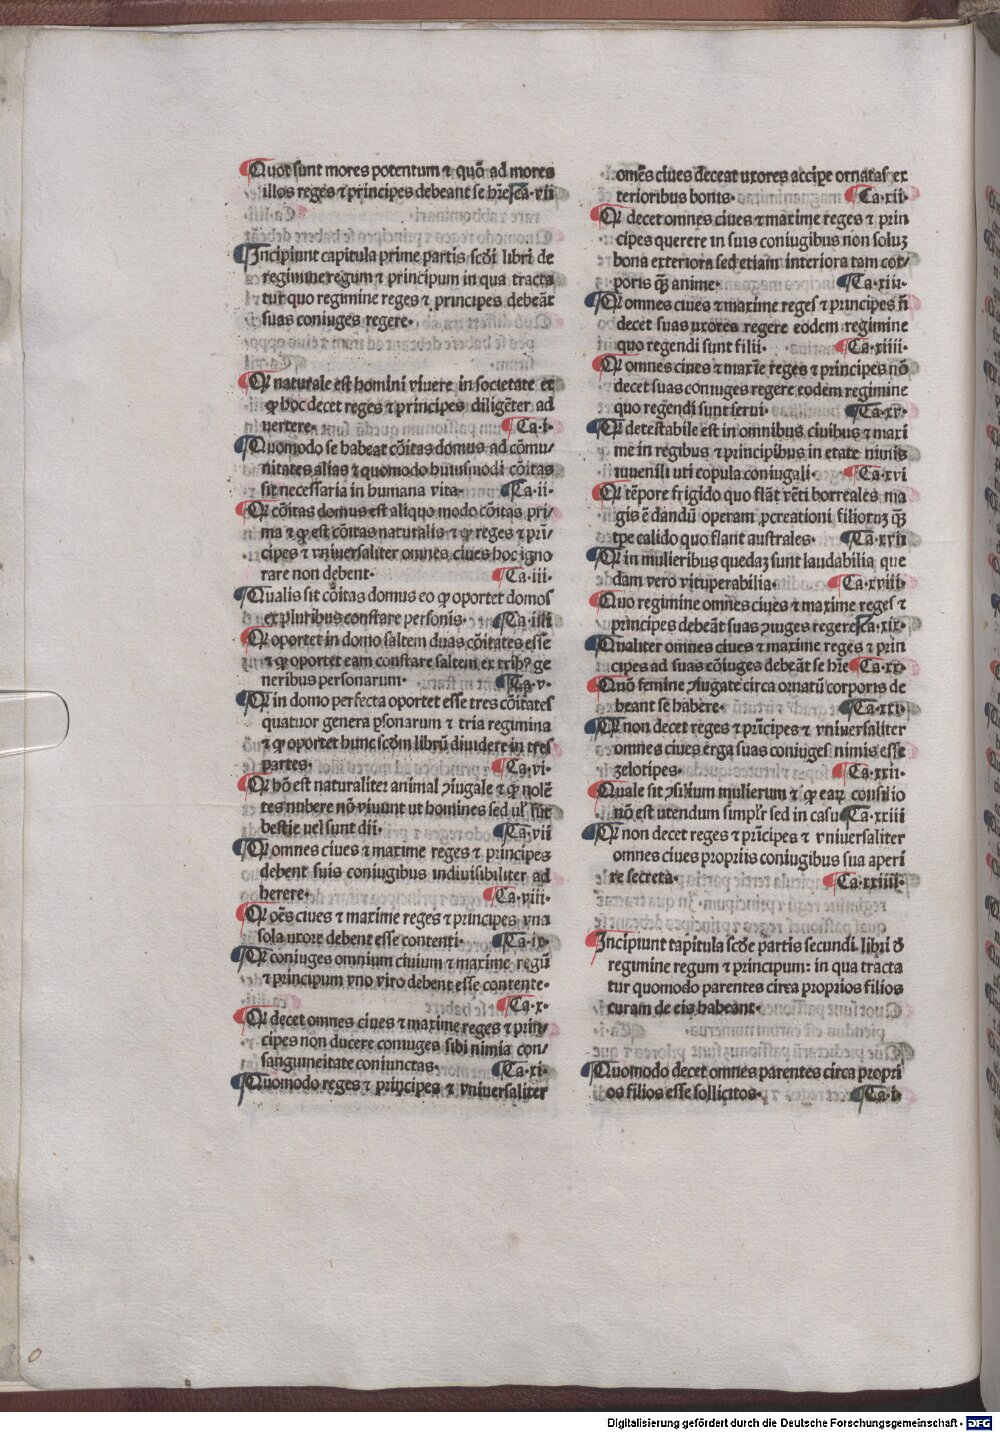 Quot sunt mores potentum ⁊ quō ad mores
illos reges ⁊ principes debeant se hr̄e ca·vii
Incipiunt capitula prime partis scd̄i libri de
regimine regum ⁊ principum in qua tracta
tur quo regimine reges ⁊ principes debeāt
suas coniuges regere·
Qꝫ naturale est homini vivere in societate et
ꝙ hoc decet reges ⁊ principes diligēter ad
vertere· Ca·i·
Quomodo se habeat cōitas domus ad cōmu/
nitates alias ⁊ quomodo huiusmodi cōitas
sit necessaria in humana vita· Ca·ii·
Qꝫ cōitas domus est aliquo modo cōitas pri/
ma ⁊ ꝙ est cōitas naturalis ⁊ ꝙ reges ⁊ prī/
cipes ⁊ vniuersaliter omnes ciues hoc igno
rare non debent· Ca·iii·
Qualis sit cōitas domus eo ꝙ oportet domos
ex pluribus constare personis· Ca·iiii
Qꝫ oportet in domo saltem duas cōitates esse
⁊ ꝙ oportet eam constare saltem ex trib⁹ ge
neribus personarum· Ca·v·
Qꝫ in domo perfecta oportet esse tres cōitates
quatuor genera ꝑsonarum ⁊ tria regimina
⁊ ꝙ oportet hunc scd̄m librū diuidere in tres
partes· Ca·vi·
Qꝫ hō est naturaliter animal ꝯiugale ⁊ ꝙ nolē
tes nubere nō viuunt ut homines sed ul' sūt
bestie uel sunt dii· Ca·vii
Qꝫ omnes ciues ⁊ maxime reges ⁊ principes
debent suis coniugibus indiuisibiliter ad
herere· Ca·viii·
Qꝫ oēs ciues ⁊ maxime reges ⁊ principes vna
sola uxore debent esse contenti· Ca·ix·
Qꝫ coniuges omnium ciuium ⁊ maxime regū
⁊ principum vno viro debent esse contente·
Ca·x·
Qꝫ decet omnes ciues ⁊ maxime reges ⁊ prin/
cipes non ducere coniuges sibi nimia con/
sanguineitate coniunctas· Ca·xi·
Quomodo reges ⁊ principes ⁊ vniuersaliter
omēs ciues deceat uxores accipe ornatas ex
terioribus bonis· Ca·xii·
Qꝫ decet omnes ciues ⁊ maxime reges ⁊ prin
cipes querere in suis coniugibus non soluꝫ
bona exteriora sed etiam interiora tam cor/
poris q̄ꝫ anime· Ca·xiii·
Qꝫ omnes ciues ⁊ maxime reges ⁊ principes n̄
decet suas uxores regere eodem regimine
quo regendi sunt filii· Ca·xiiii·
Qꝫ omnes ciues ⁊ maxīe reges ⁊ principes nō
decet suas coniuges regere eodem regimine
quo regendi sunt serui· Ca·xv·
Qꝫ detestabile est in omnibus ciuibus ⁊ maxi
me in regibus ⁊ principibus in etate nimis
iuuenili uti copula coniugali· Ca·xvi
Qꝫ tēpore frigido quo flāt vēti borreales ma
gis ē dandū operam ꝓcreationi filioruꝫ q̄ꝫ
tꝑe calido quo flant australes· Ca·xvii
Qꝫ in mulieribus quedaꝫ sunt laudabilia que
dam vero vituperabilia· Ca·xviii·
Quo regimine omnes ciues ⁊ maxime reges ⁊
principes debeāt suas ꝯiuges regere ca·xix·
Qualiter omnes ciues ⁊ maxime reges ⁊ prin
cipes ad suas cōiuges debeāt se hr̄e Ca·xx·
Quō femine ꝯiugate circa ornatū corporis de
beant se habere· Ca·xxi·
Qꝫ non decet reges ⁊ prīcipes ⁊ vniuersaliter
omnes ciues erga suas coniuges nimis esse
zelotipes· Ca·xxii·
Quale sit ꝯsiliūm mulierum ⁊ ꝙ eaꝝ consilio
nō est utendum simpl'r sed in casu Ca·xxiii
Qꝫ non decet reges ⁊ prīcipes ⁊ vniuersaliter
omnes ciues propriis coniugibus sua aperi
re secreta· Ca·xxiiii·
Incipiunt capitula scd̄e partis secundi libri đ
regimine regum ⁊ principum: in qua tracta
tur quomodo parentes circa proprios filios
curam de eis habeant·
Quomodo decet omnes parentes circa propri
os filios esse sollicitos· Ca·i·
Digitalisierung gefördert durch die Deutsche Forschungsgemeinschaft - DFG